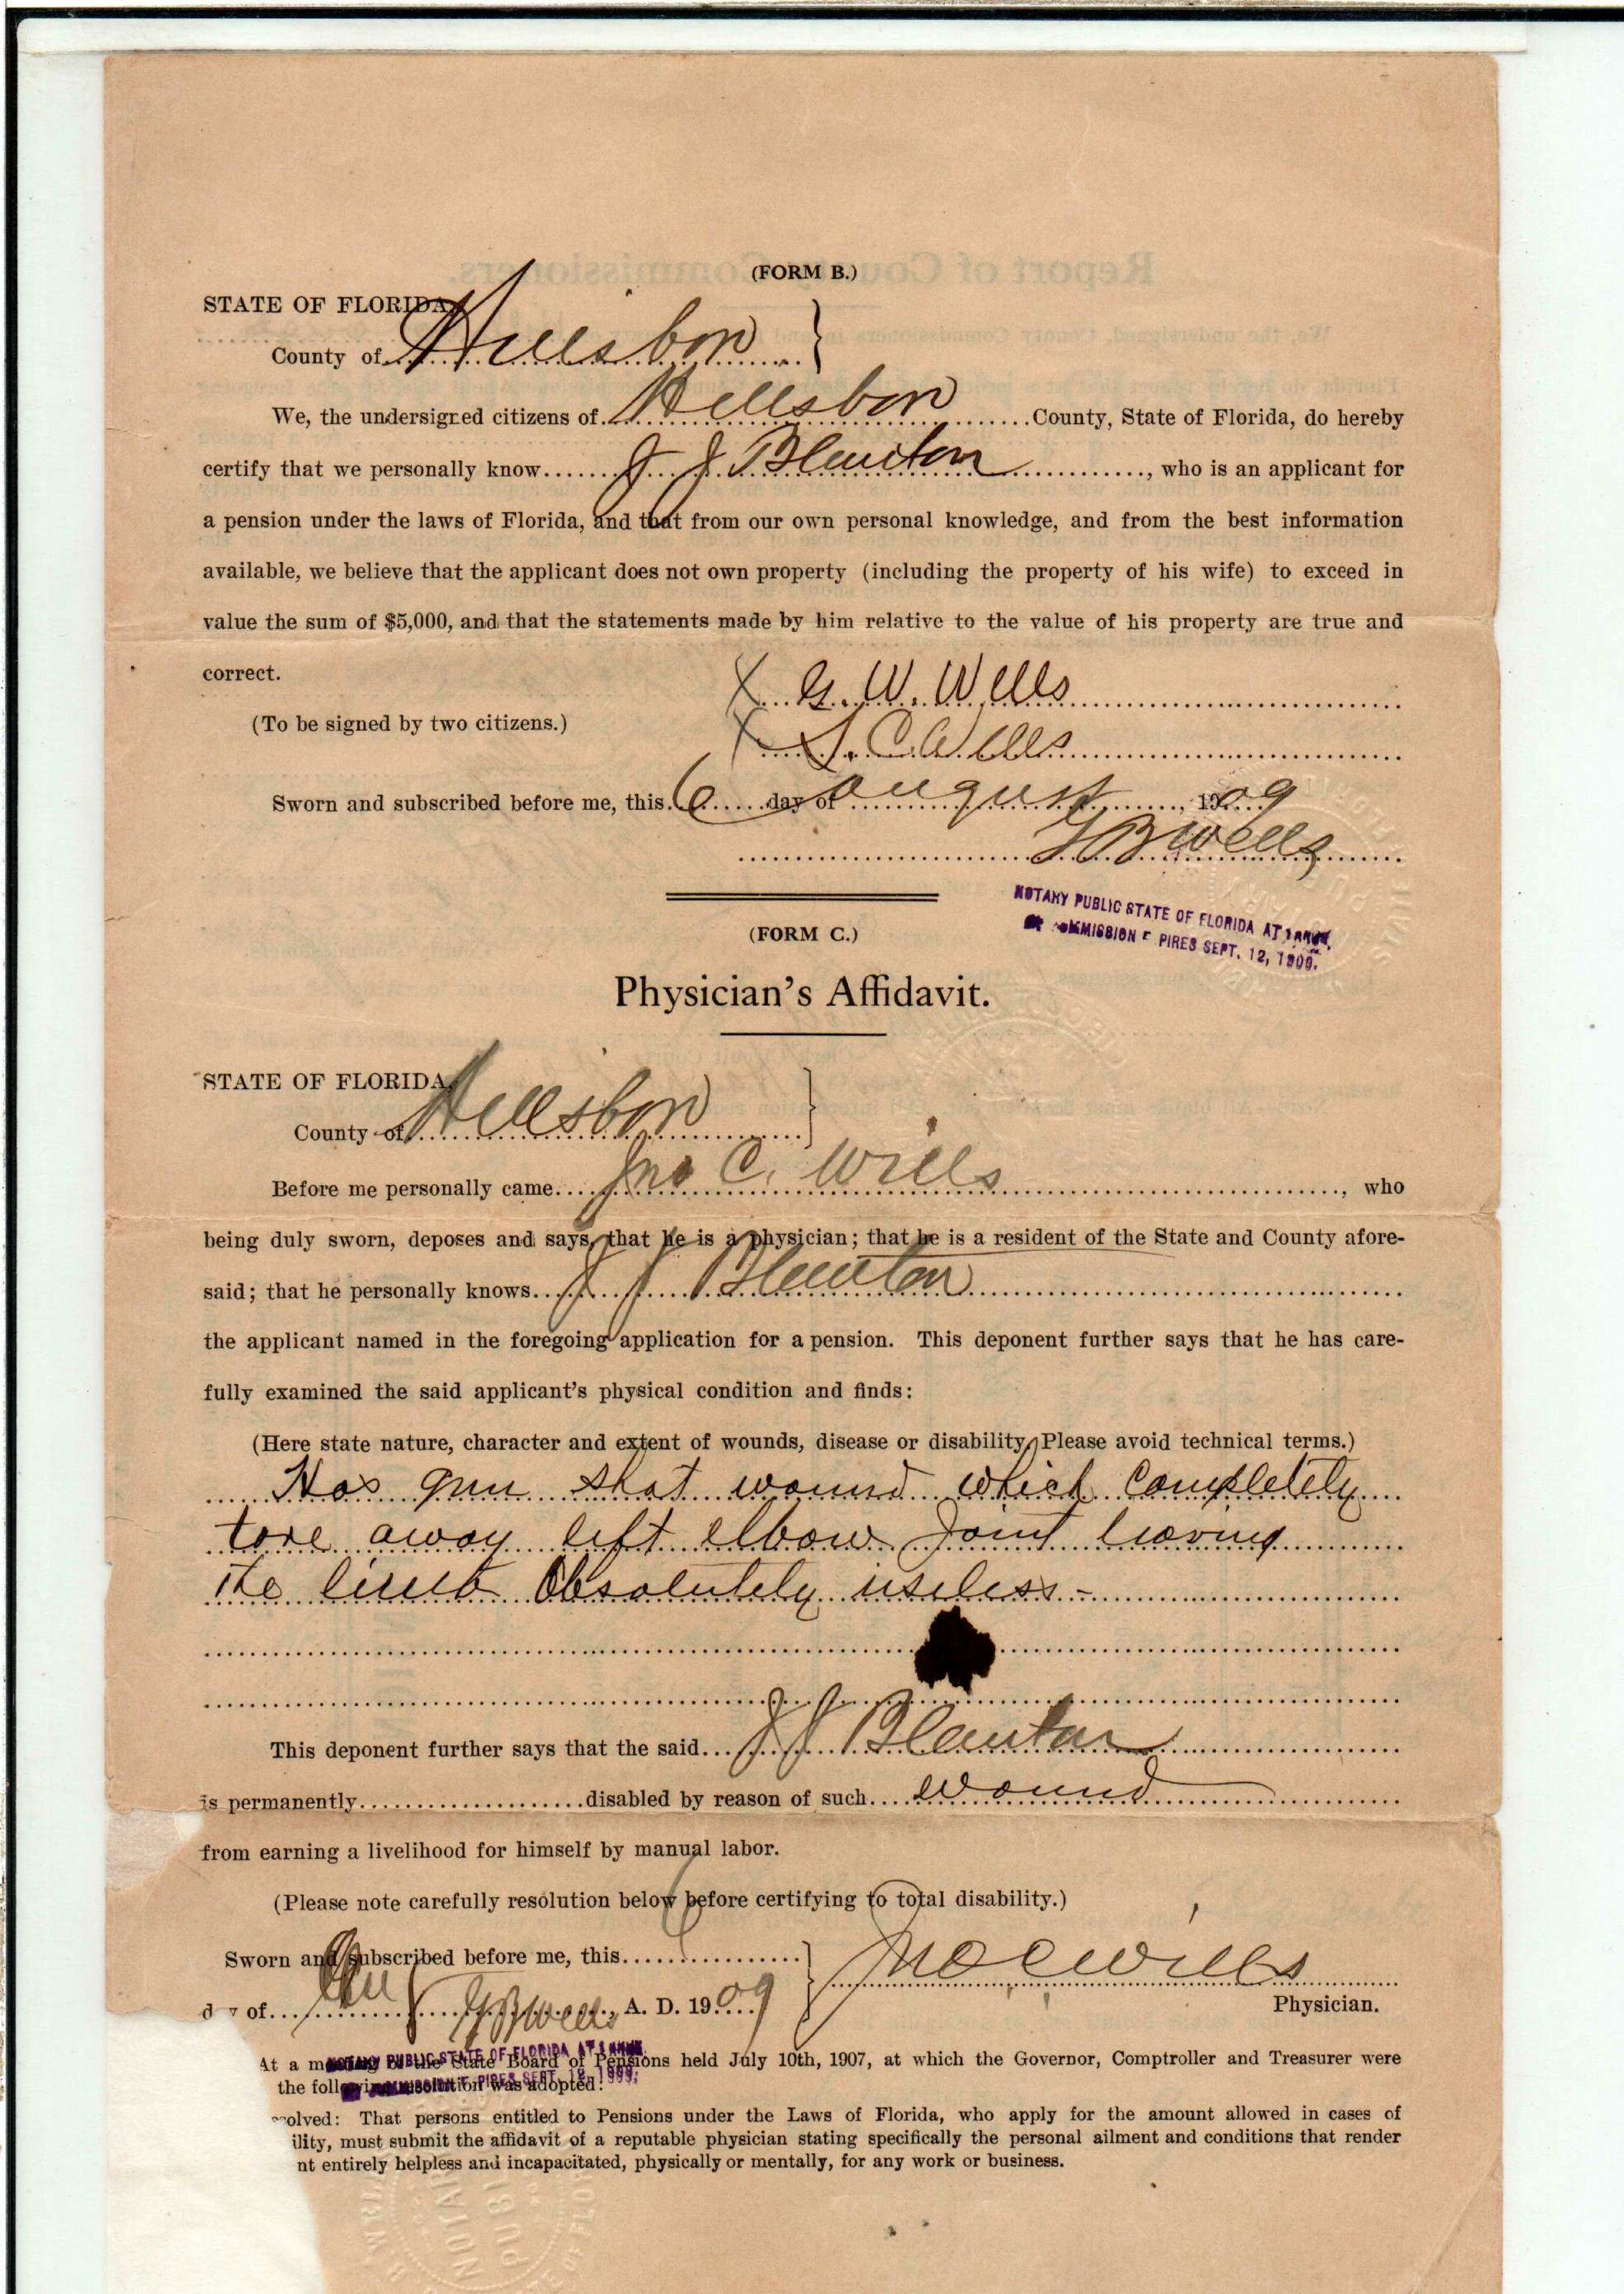 (FORM B.)
STATE OF FLORIDA,
County of Hillsboro }
We, the undersigned citizens of Hillsboro County, State of Florida, do hereby
certify that we personally know J J Blanton, who is an applicant for
a pension under the laws of Florida, and that from our own personal knowledge, and from the best information
available, we believe that the applicant does not own property (including the property of his wife) to exceed in
value the sum of $5,000, and that the statements made by him relative to the value of his property are true and
correct.
X G. W. Wells
(To be signed by two citizens.)
X S. C. Wells
Sworn and subscribed before me, this 6 day of august, 1909
Wells
NOTARY PUBLIC STATE OF FLORIDA AT LARGE.
COMMISSION EXPIRES SEPT. 12, 1909.
(FORM C.)
Physician's Affidavit.
STATE OF FLORIDA,
County of Hillsboro }
Before me personally came Jno C. Wills, who
being duly sworn, deposes and says, that he is a physician; that he is a resident of the State and County afore-
said; that he personally knows J J Blanton
the applicant named in the foregoing application for a pension. This deponent further says that he has care-
fully examined the said applicant's physical condition and finds:
(Here state nature, character and extent of wounds, disease or disability. Please avoid technical terms.)
Has gun shot wound which completely
tore away left elbow joint leaving
the limb absolutely useless.-
This deponent further says that the said J J Blanton
is permanently disabled by reason of such wound
from earning a livelihood for himself by manual labor.
(Please note carefully resolution below before certifying to total disability.)
Sworn and subscribed before me, this 6 } Jno C Wills
d y of Aug, A. D. 1909 Physician.
Wells
NOTARY PUBLIC STATE OF FLORIDA AT LARGE.
COMMISSION EXPIRES SEPT. 12, 1909.
At a meeting of the State Board of Pensions held July 10th, 1907, at which the Governor, Comptroller and Treasurer were
the following resolution was adopted:
solved: That persons entitled to Pensions under the Laws of Florida, who apply for the amount allowed in cases of
ility, must submit the affidavit of a reputable physician stating specifically the personal ailment and conditions that render
nt entirely helpless and incapacitated, physically or mentally, for any work or business.